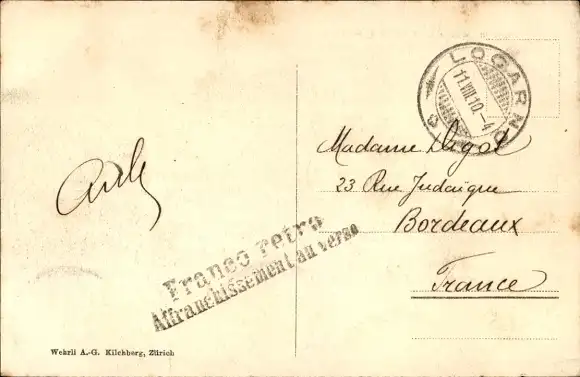 LOCARNO
11.VIII.10.-4
Madame Digol
23 Rue Judaïque
Bordeaux
France
Franco retro
Affranchissement au verso
Wehrli A.-G. Kilchberg, Zürich